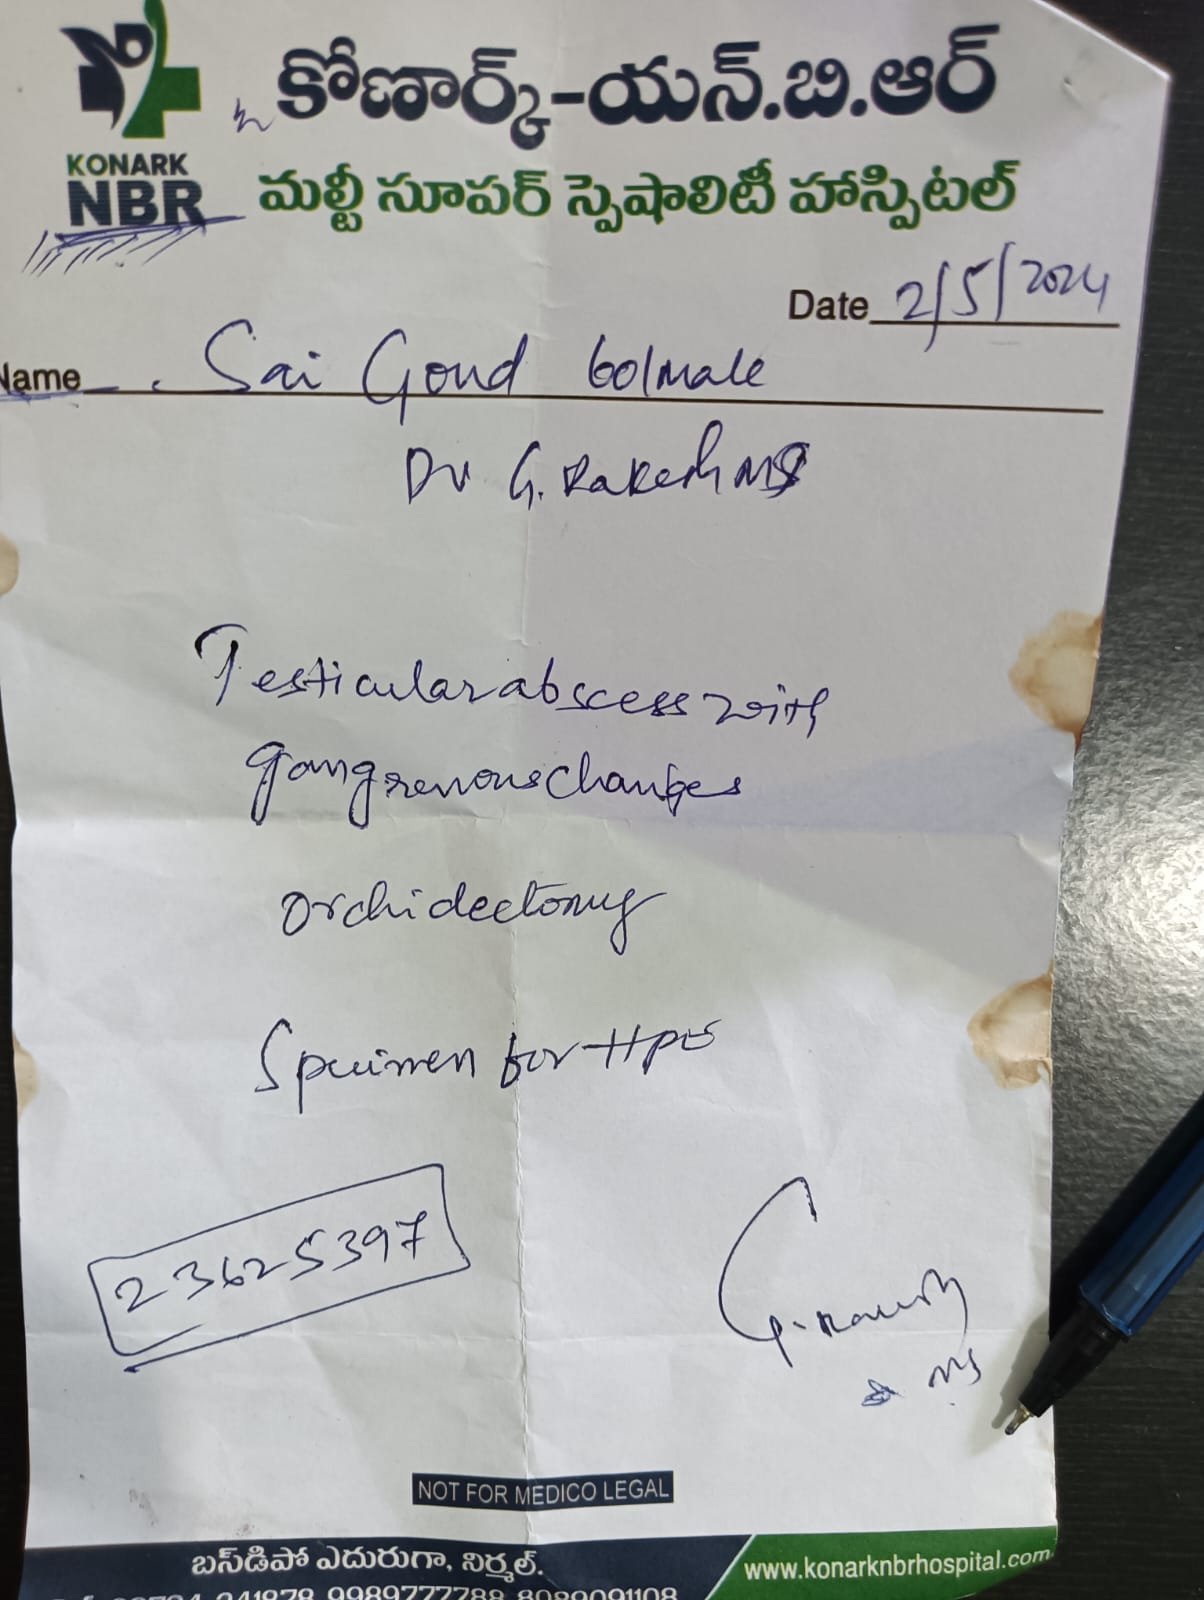 కోణార్క్-యన్.బి.ఆర్
KONARK
NBR
మల్టీ సూపర్ స్పెషాలిటీ హాస్పిటల్
Date 2/5/2024
Name Sai Goud 60/male
Dr G. Rakesh MS
Testicular abscess with
gangrenous changes
orchidectomy
Specimen for HPE
23625397
G. Rakesh
MS
NOT FOR MEDICO LEGAL
బస్‌డిపో ఎదురుగా, నిర్మల్.
www.konarknbrhospital.com
241878, 9989777788, 8089091108